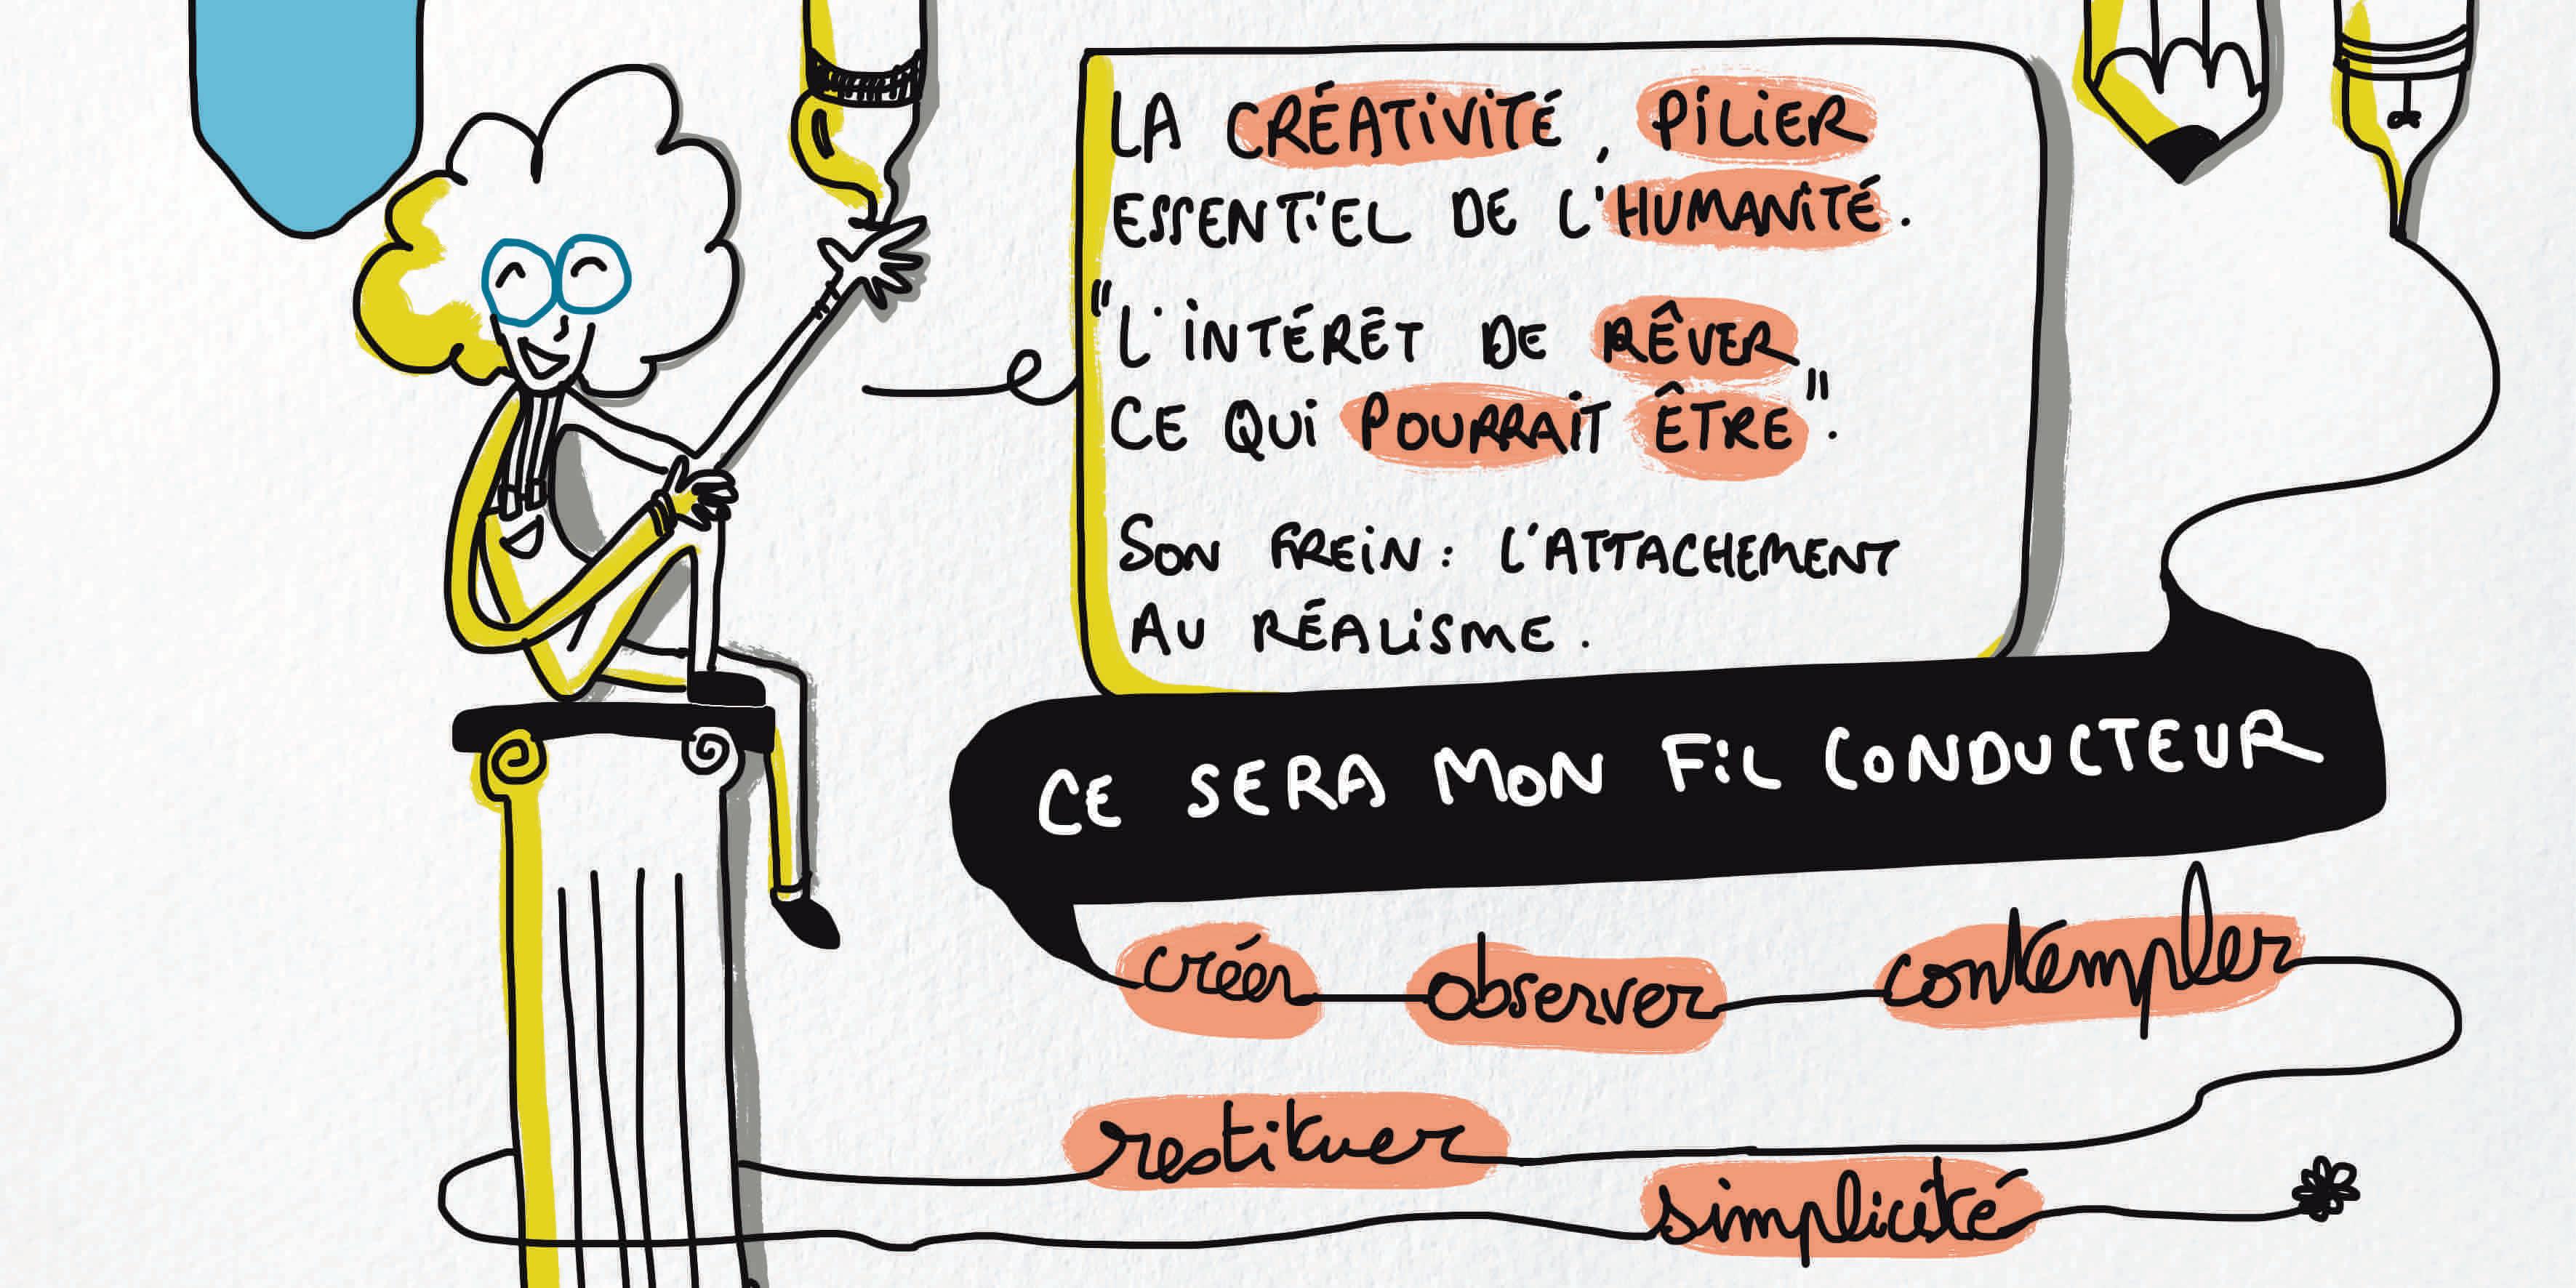 LA CRÉATIVITÉ, PILIER
ESSENTIEL DE L'HUMANITÉ.
"L'INTÉRÊT DE RÊVER
CE QUI POURRAIT ÊTRE".
SON FREIN : L'ATTACHEMENT
AU RÉALISME.
CE SERA MON FIL CONDUCTEUR
créer observer contempler
restituer
simplicité